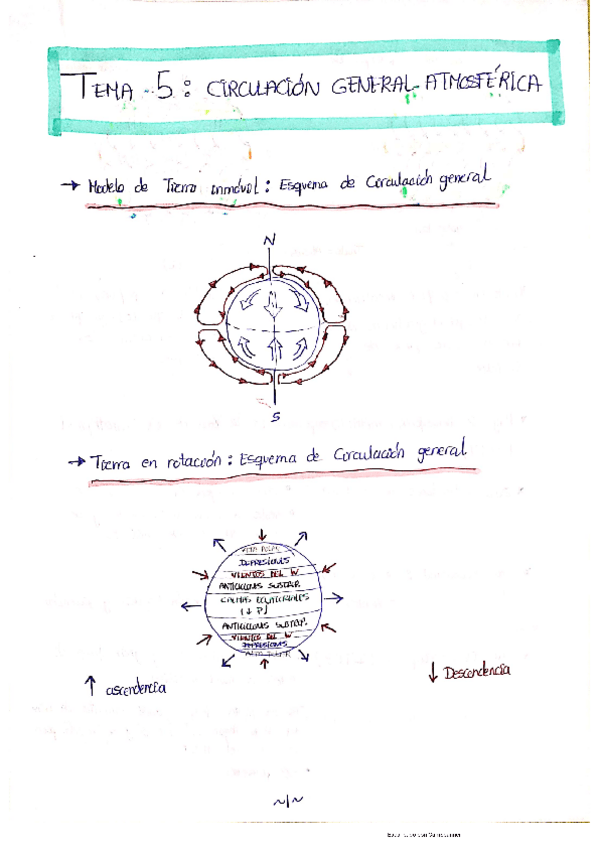 TEMA 5: CIRCULACIÓN GENERAL ATMOSFÉRICA
→ Modelo de Tierra inmóvil: Esquema de Circulación general
N
S
→ Tierra en rotación: Esquema de Circulación general
DEPRESIONES
VIENTOS DEL W
ANTICICLONES SUBTROP.
CALMAS ECUATORIALES
(↓P)
ANTICICLONES SUBTROP.
VIENTOS DEL W
DEPRESIONES
↑ ascendencia
↓ Descendencia
~1~